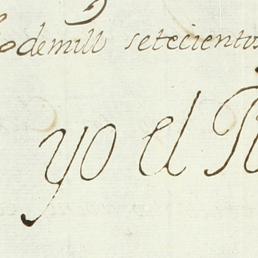 odemill setecientos
yo el R